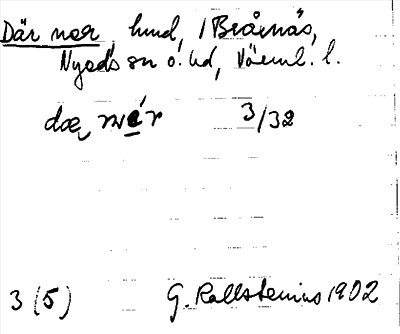 Där nor, hund, i Bråtnäs,
Nyeds sn o. hd, Värml. l.
dæ, nώr 3/32
3 (5) G. Kallstenius 1902